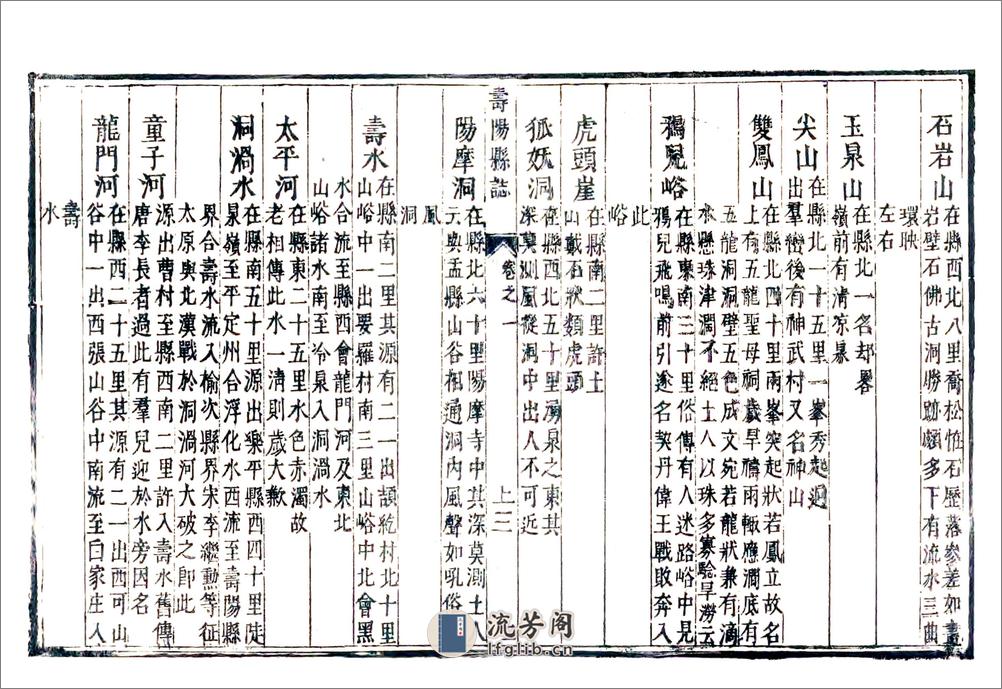 石岩山
在縣西北八里喬松怪石歷落參差如畫
岩壁石佛古洞勝跡頗多下有流水三曲
環映
左右
玉泉山
在縣北一名却畧
嶺前有清凉㬥
尖山
在縣北一十五里一峯秀起迥
出羣巒後有神武村又名神山
雙鳳山
在縣北四十里兩峯突起狀若鳳立故名
上有五龍聖母祠歲旱禱雨輙應澗底有
五龍洞洞壁五色成文宛若龍狀兼有滴
水懸珠津潤不絕土人以珠多寡驗旱澇云
鴉兒峪
在縣東南三十里俗傳有人迷路峪中見
鴉兒飛鳴前引遂名契丹偉王戰敗奔入
此
峪
虎頭崖
在縣南二里許土
山戴石狀類虎頭
狐妖洞
在縣西北五十里湧泉之東其
深莫測風從洞中出人不可近
壽陽縣誌
卷之一
上三
陽摩洞
在縣北六十里陽摩寺中其深莫測土人
云與孟縣山谷相通洞內風聲如吼俗
風
洞
壽水
在縣南二里其源有二一出頡紇村北十里
山峪中一出要羅村南三里山峪中北會黑
水合流至縣西會龍門河及東北
山峪諸水南至冷泉入洞渦水
太平河
在縣東二十五里水色赤濁故
老相傳此水一清則歲大歉
洞渦水
在縣南五十里源出樂平縣西四十里陡
泉嶺至平定州合浮化水西流至壽陽縣
界合壽水流入榆次縣界宋李繼勳等征
太原與北漢戰於洞渦河大破之即此
童子河
源出曹村至縣西南二里許入壽水舊傳
唐李長者過此有羣兒迎於水旁因名
龍門河
在縣西二十五里其源有二一出西可山
谷中一出西張山谷中南流至白家庄入
壽
水
流芳阁
lfglib.cn